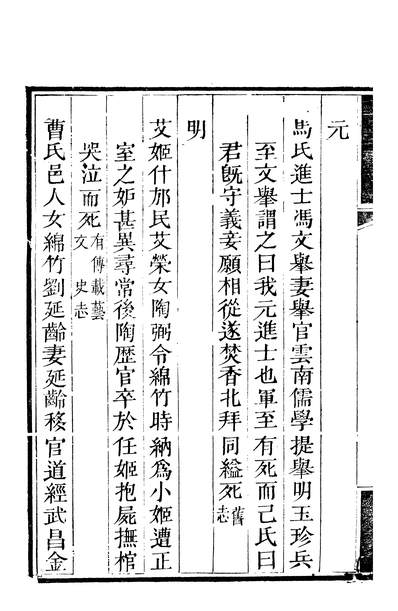 元
馬氏進士馮文舉妻舉官雲南儒學提舉明玉珍兵
至文舉謂之曰我元進士也軍至有死而己氏曰
君旣守義妾願相從遂焚香北拜同縊死舊志
明
艾姬什邡民艾榮女陶弼令綿竹時納爲小姬遭正
室之妒甚異尋常後陶歷官卒於任姬抱屍撫棺
哭泣而死有傳載藝文史志
曹氏邑人女綿竹劉延齡妻延齡移官道經武昌金